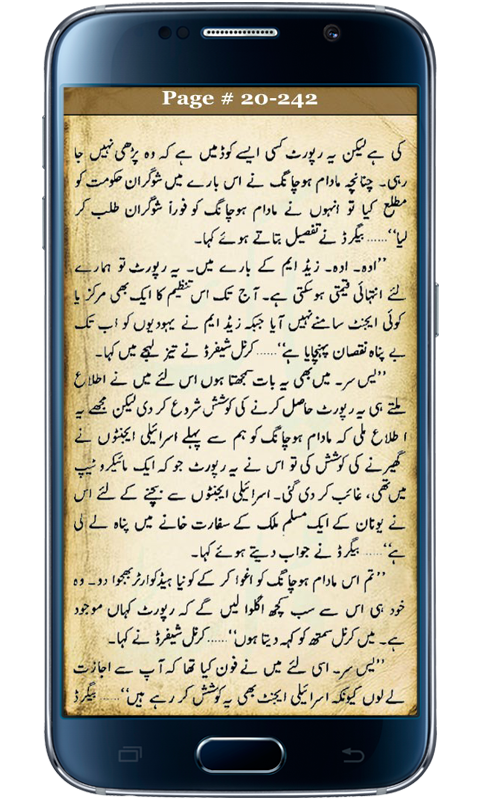 Page # 20-242
کی ہے لیکن یہ رپورٹ کسی ایسے کوڈ میں ہے کہ وہ پڑھی نہیں جا
رہی۔ چنانچہ مادام ہوچانگ نے اس بارے میں شوگران حکومت کو
مطلع کیا تو انہوں نے مادام ہوچانگ کو فوراً شوگران طلب کر
لیا‘‘...... بیگرڈ نے تفصیل بتاتے ہوئے کہا۔
’’اوہ۔ اوہ۔ زیڈ ایم کے بارے میں۔ یہ رپورٹ تو ہمارے
لئے انتہائی قیمتی ہو سکتی ہے۔ آج تک اس تنظیم کا ایک بھی مرکز یا
کوئی ایجنٹ سامنے نہیں آیا جبکہ زیڈ ایم نے یہودیوں کو اب تک
بے پناہ نقصان پہنچایا ہے‘‘...... کرنل شیفرڈ نے تیز لہجے میں کہا۔
’’یس سر۔ میں بھی یہ بات سمجھتا ہوں اس لئے میں نے اطلاع
ملتے ہی یہ رپورٹ حاصل کرنے کی کوشش شروع کر دی لیکن مجھے یہ
اطلاع ملی کہ مادام ہوچانگ کو ہم سے پہلے اسرائیلی ایجنٹوں نے
گھیرنے کی کوشش کی تو اس نے یہ رپورٹ جو کہ ایک مائیکرو ٹیپ
میں تھی، غائب کر دی گئی۔ اسرائیلی ایجنٹوں سے بچنے کے لئے اس
نے یونان کے ایک مسلم ملک کے سفارت خانے میں پناہ لے لی
ہے‘‘...... بیگرڈ نے جواب دیتے ہوئے کہا۔
’’تم اس مادام ہوچانگ کو اغوا کر کے کونیا ہیڈکوارٹر بھجوا دو۔ وہ
خود ہی اس سے سب کچھ اگلوا لیں گے کہ رپورٹ کہاں موجود
ہے۔ میں کرنل سمتھ کو کہہ دیتا ہوں‘‘...... کرنل شیفرڈ نے کہا۔
’’یس سر۔ اسی لئے میں نے فون کیا تھا کہ آپ سے اجازت
لے لوں کیونکہ اسرائیلی ایجنٹ بھی یہ کوشش کر رہے ہیں‘‘...... بیگرڈ